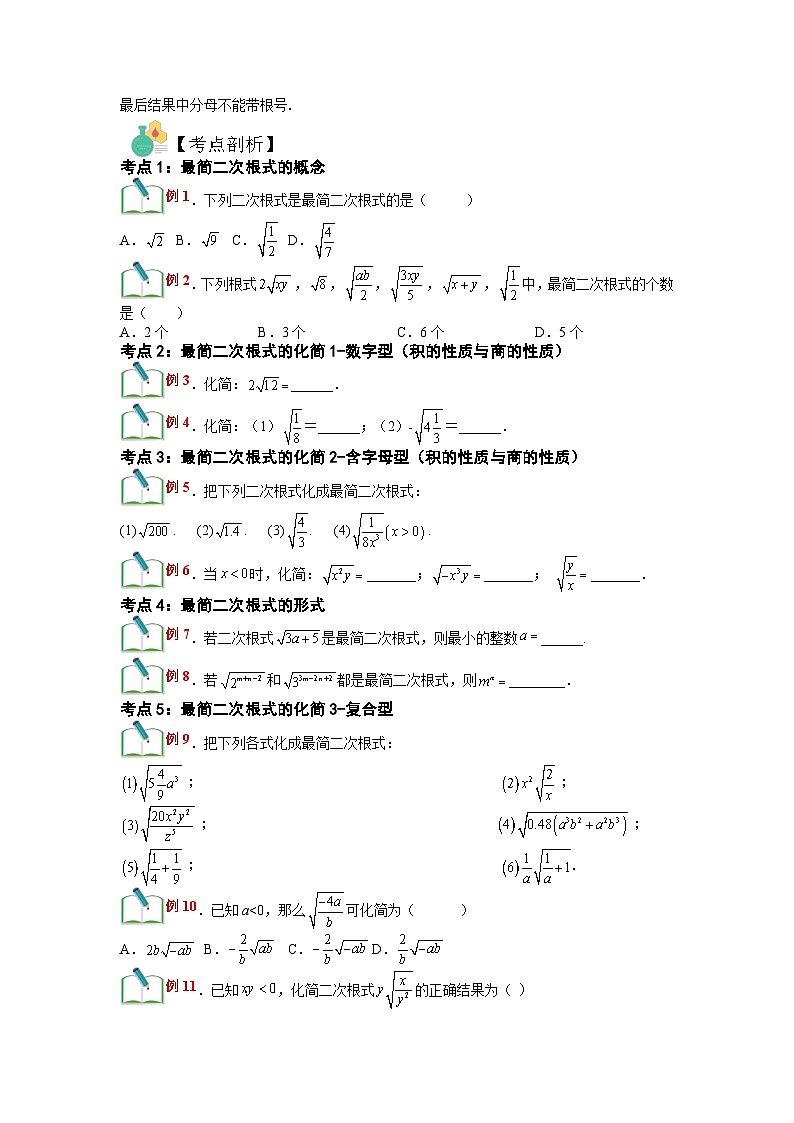 最后结果中分母不能带根号.
【考点剖析】
考点1：最简二次根式的概念
例1．下列二次根式是最简二次根式的是（　　）
A．√2 B．√9 C．√(1/2) D．√(4/7)
例2．下列根式2√(xy)，√8，√(ab/2)，√(3xy/5)，√(x+y)，√(1/2)中，最简二次根式的个数
是（　　）
A．2个 B．3个 C．6个 D．5个
考点2：最简二次根式的化简1-数字型（积的性质与商的性质）
例3．化简：2√12=______．
例4．化简：（1）√(1/8)＝______；（2）-√(4 1/3)＝______．
考点3：最简二次根式的化简2-含字母型（积的性质与商的性质）
例5．把下列二次根式化成最简二次根式：
(1)√200． (2)√1.4． (3)√(4/3)． (4)√(1/(8x³))(x>0)．
例6．当x<0时，化简：√(x²y)=_______；√(-x³y)=_______； √(y/x)=_______．
考点4：最简二次根式的形式
例7．若二次根式√(3a+5)是最简二次根式，则最小的整数a=______.
例8．若√(2^(m+n-2))和√(3^(3m-2n+2))都是最简二次根式，则mⁿ=________．
考点5：最简二次根式的化简3-复合型
例9．把下列各式化成最简二次根式：
(1)√(5 4/9 a³)； (2)x²√(2/x)；
(3)√(20x²y²/z⁵)； (4)√(0.48(a³b²+a²b³))；
(5)√(1/4+1/9)； (6)1/a√(1/a+1).
例10．已知a<0，那么√(-4a/b)可化简为（　　）
A．2b√(-ab) B．-2/b√(ab) C．-2/b√(-ab) D．2/b√(-ab)
例11．已知xy<0，化简二次根式y√(x/y²)的正确结果为（ ）